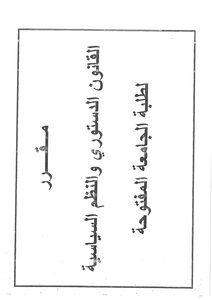 مـقـرر
القانون الدستوري والنظم السياسية
لطلبة الجامعة المفتوحة